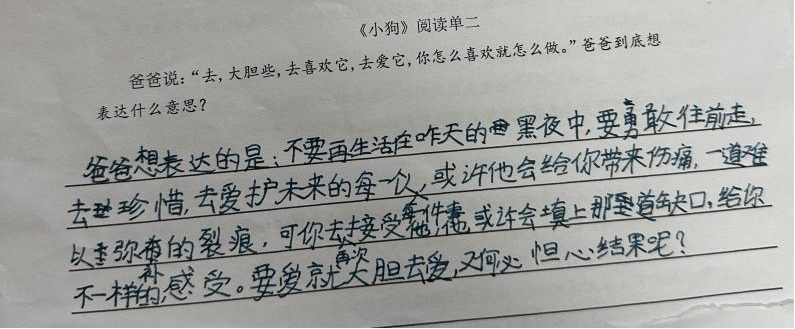 《小狗》阅读单二
爸爸说：“去，大胆些，去喜欢它，去爱它，你怎么喜欢就怎么做。”爸爸到底想
表达什么意思？
爸爸想表达的是：不要再生活在昨天的黑夜中，要勇敢往前走，
去珍惜，去爱护未来的每一个，或许他会给你带来伤痛，一道难
以弥补的裂痕，可你去接受每件事，他或许会填上那道缺口，给你
不一样的感受。要爱就再次大胆去爱，又何必担心结果呢？